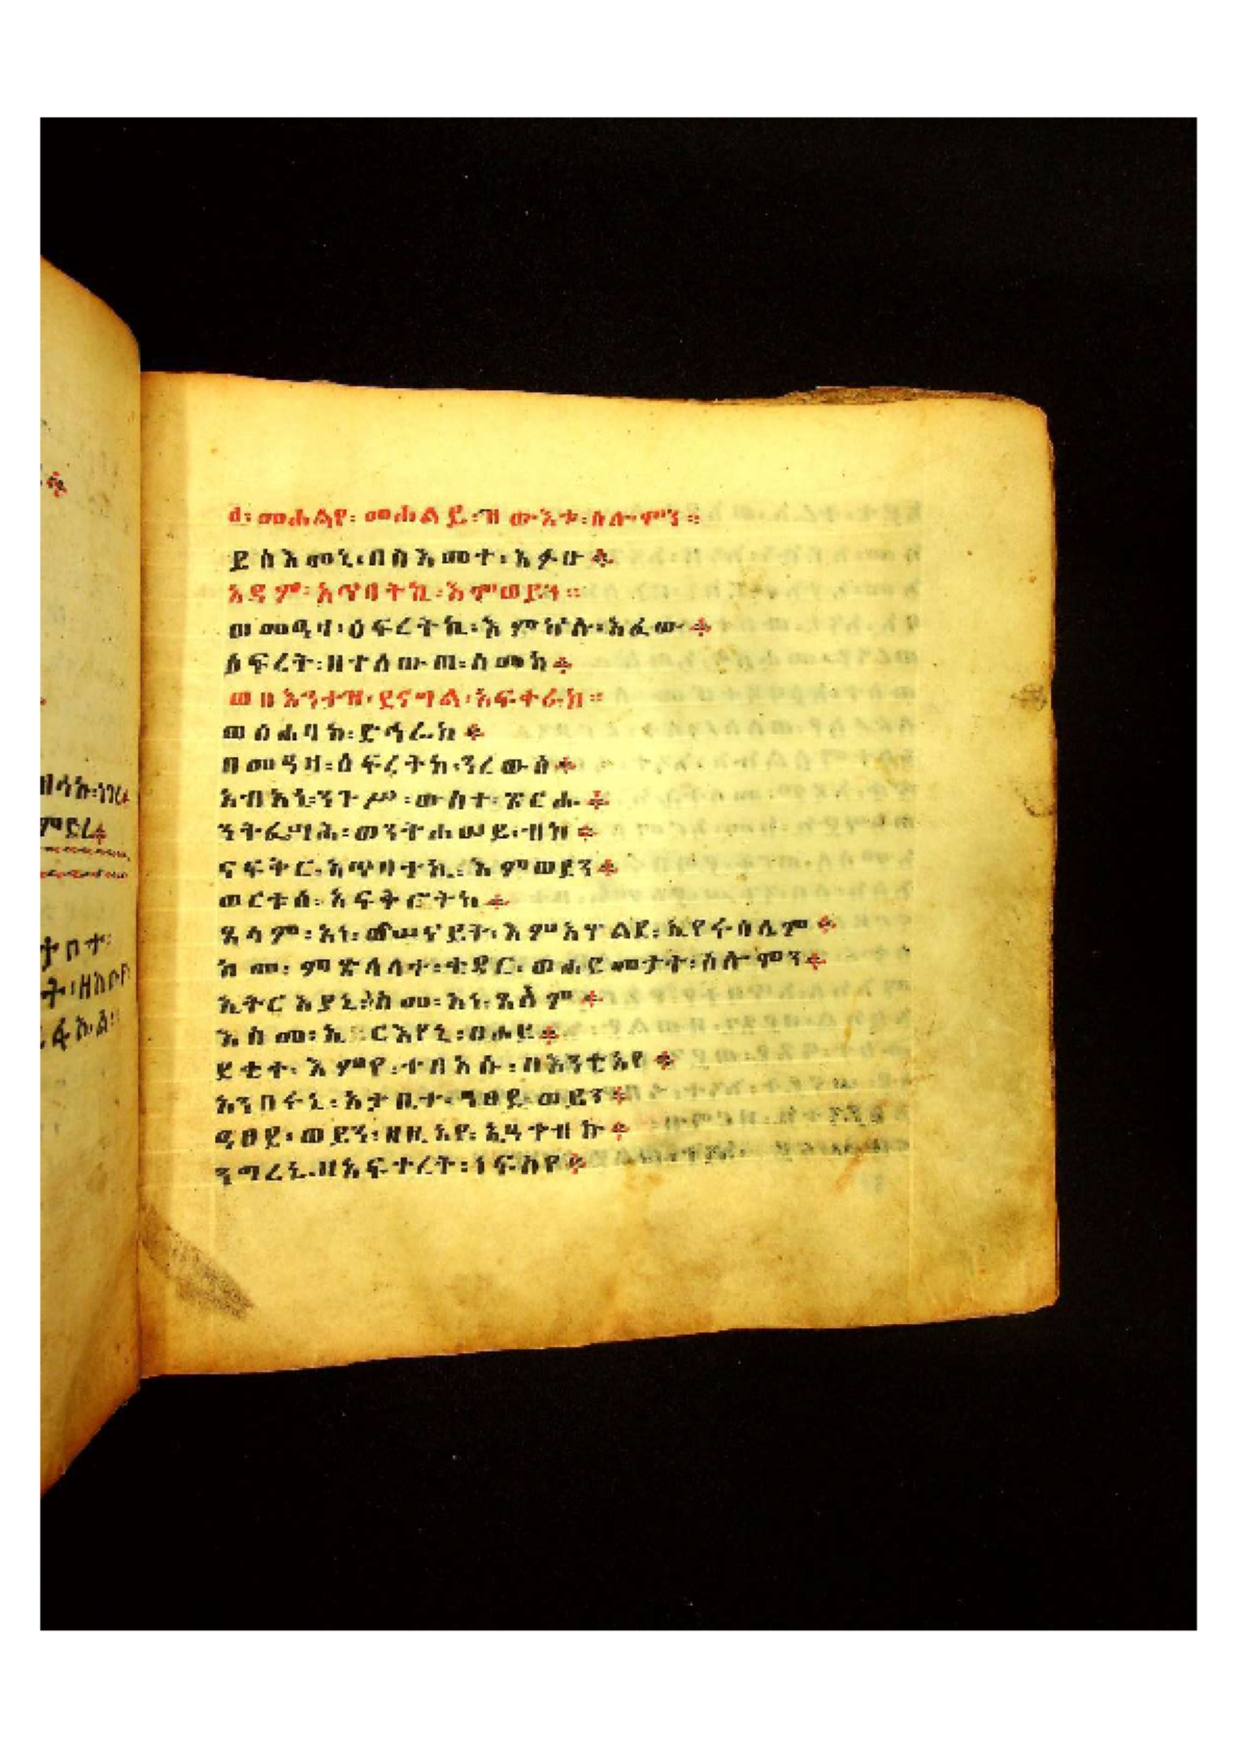 መሐልየ፡ መሐልይ፡ ዝ ውእቱ፡ ሰሎሞን።
ይስእመኒ፡ በስእመተ፡ አፉሁ።
አዳም፡ አጥባትኪ፡ እምወይን።
ወመዓዛ፡ ዕፍረትኪ፡ እምኵሉ፡ አፈው።
ዕፍረት፡ ዘተሰውጠ፡ ስመከ።
ወበእንተዝ፡ ደናግል፡ አፍቀራከ።
ወሰሐባከ፡ ድኅሬከ።
በመዓዛ፡ ዕፍረትከ፡ ንረውጽ።
አብአኒ፡ ንጉሥ፡ ውስተ፡ ጽርሑ።
ንትፌሣሕ፡ ወንትሐሠይ፡ ብከ።
ናፍቅር፡ አጥባተኪ፡ እምወይን።
ወርቱዕ፡ አፍቅሮትከ።
ጸላም፡ አነ፡ ወሠናይት፡ እምአዋልደ፡ ኢየሩሳሌም።
ከመ፡ ምጽላላተ፡ ቄዳር፡ ወሐይመታት፡ ሰሎሞን።
ኢትርአያኒ፡ እስመ፡ አነ፡ ጸላም።
እስመ፡ ኢ ርእየኒ፡ ፀሐይ።
ደቂቀ፡ እምየ፡ ተበአሱ፡ በእንቲአየ።
አንበሩኒ፡ ዓቃቢተ፡ ዓፀደ፡ ወይን።
ዓፀደ፡ ወይን፡ ዘዚአየ፡ ኢዓቀብኩ።
ንግረኒ፡ ዘአፍቀረት፡ ነፍስየ።